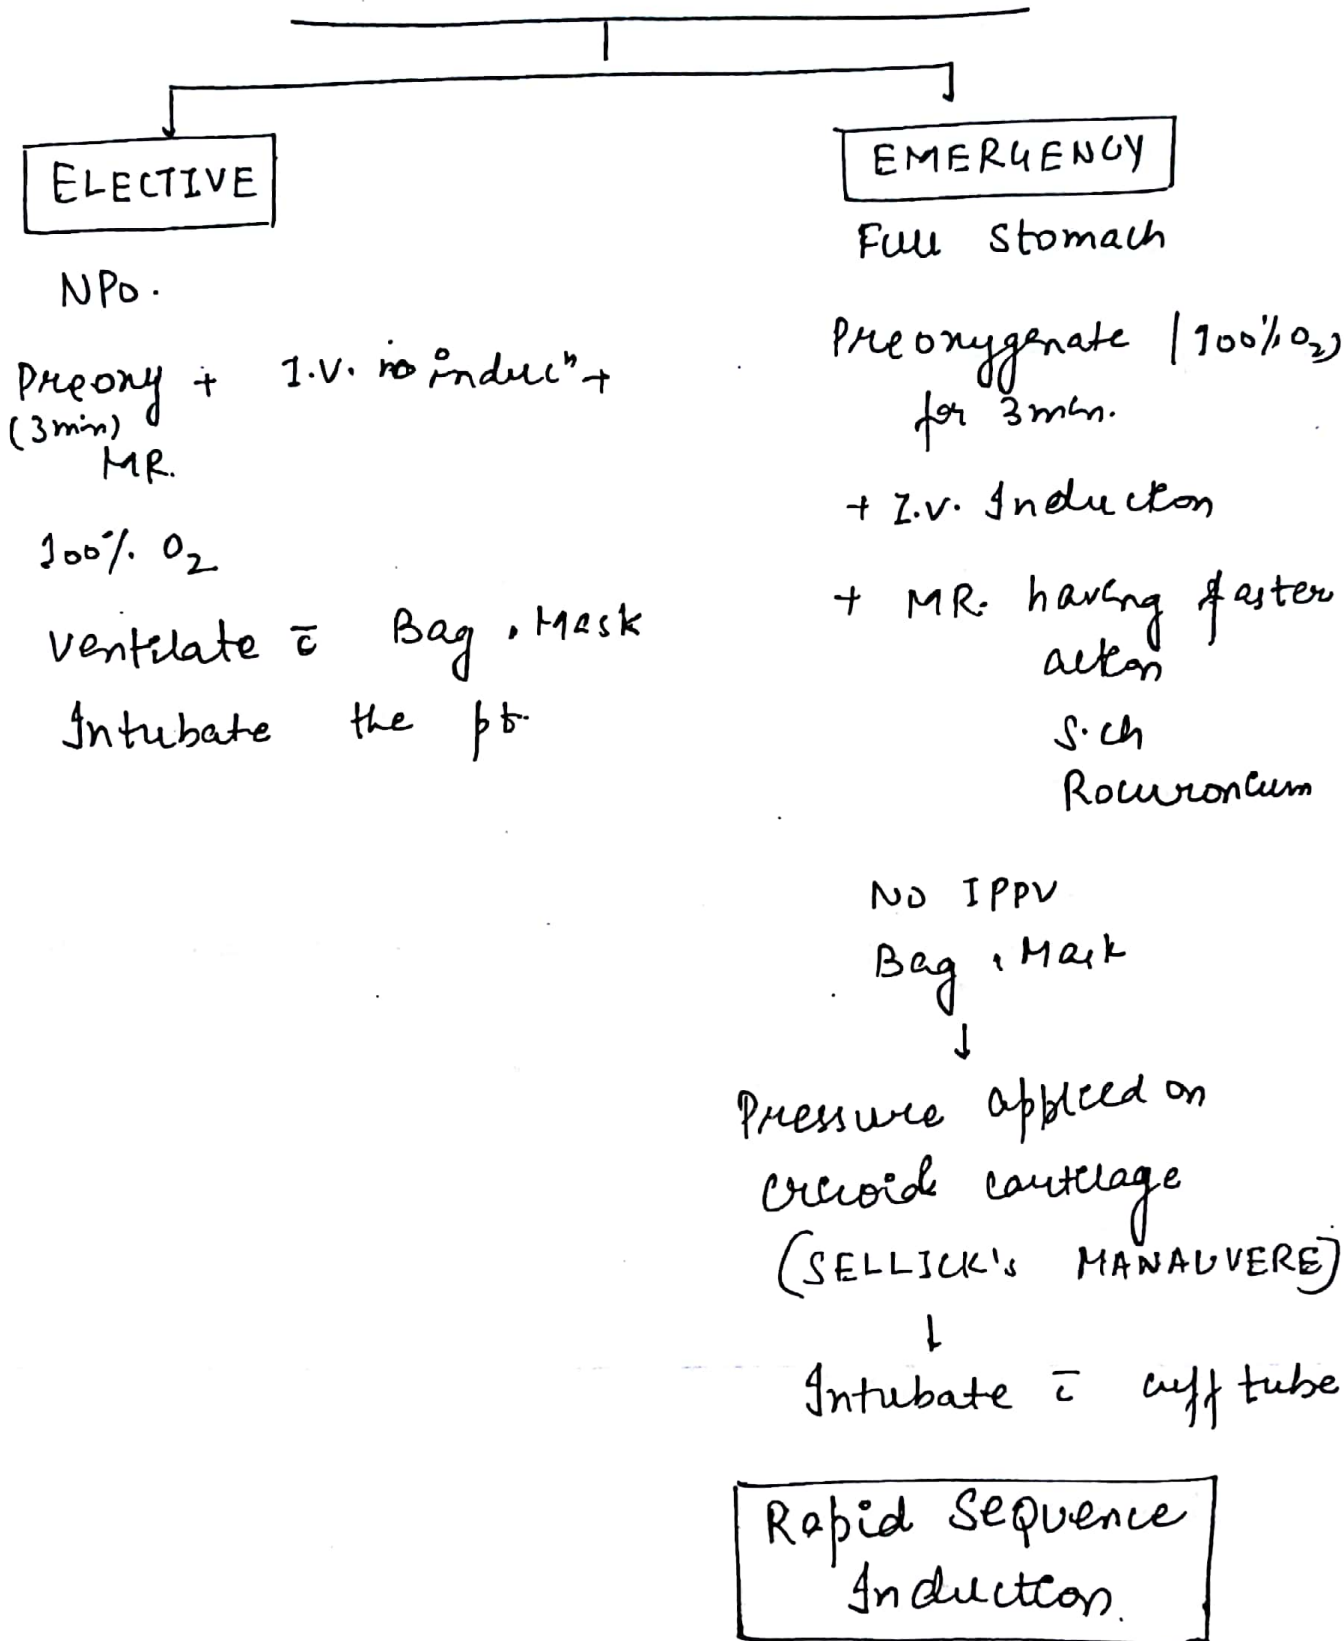 ELECTIVE
NPO.
Preoxy + I.V. inducⁿ +
(3 min)
MR.
100% O₂
Ventilate c̄ Bag, Mask
Intubate the pt.
EMERGENCY
Full Stomach
Preoxygenate (100% O₂)
for 3 min.
+ I.V. Induction
+ MR. having faster
action
S.ch
Rocuronium
NO IPPV
Bag, Mask
↓
Pressure applied on
cricoid cartilage
(SELLICK's MANAUVERE)
↓
Intubate c̄ cuff tube
Rapid Sequence
Induction.